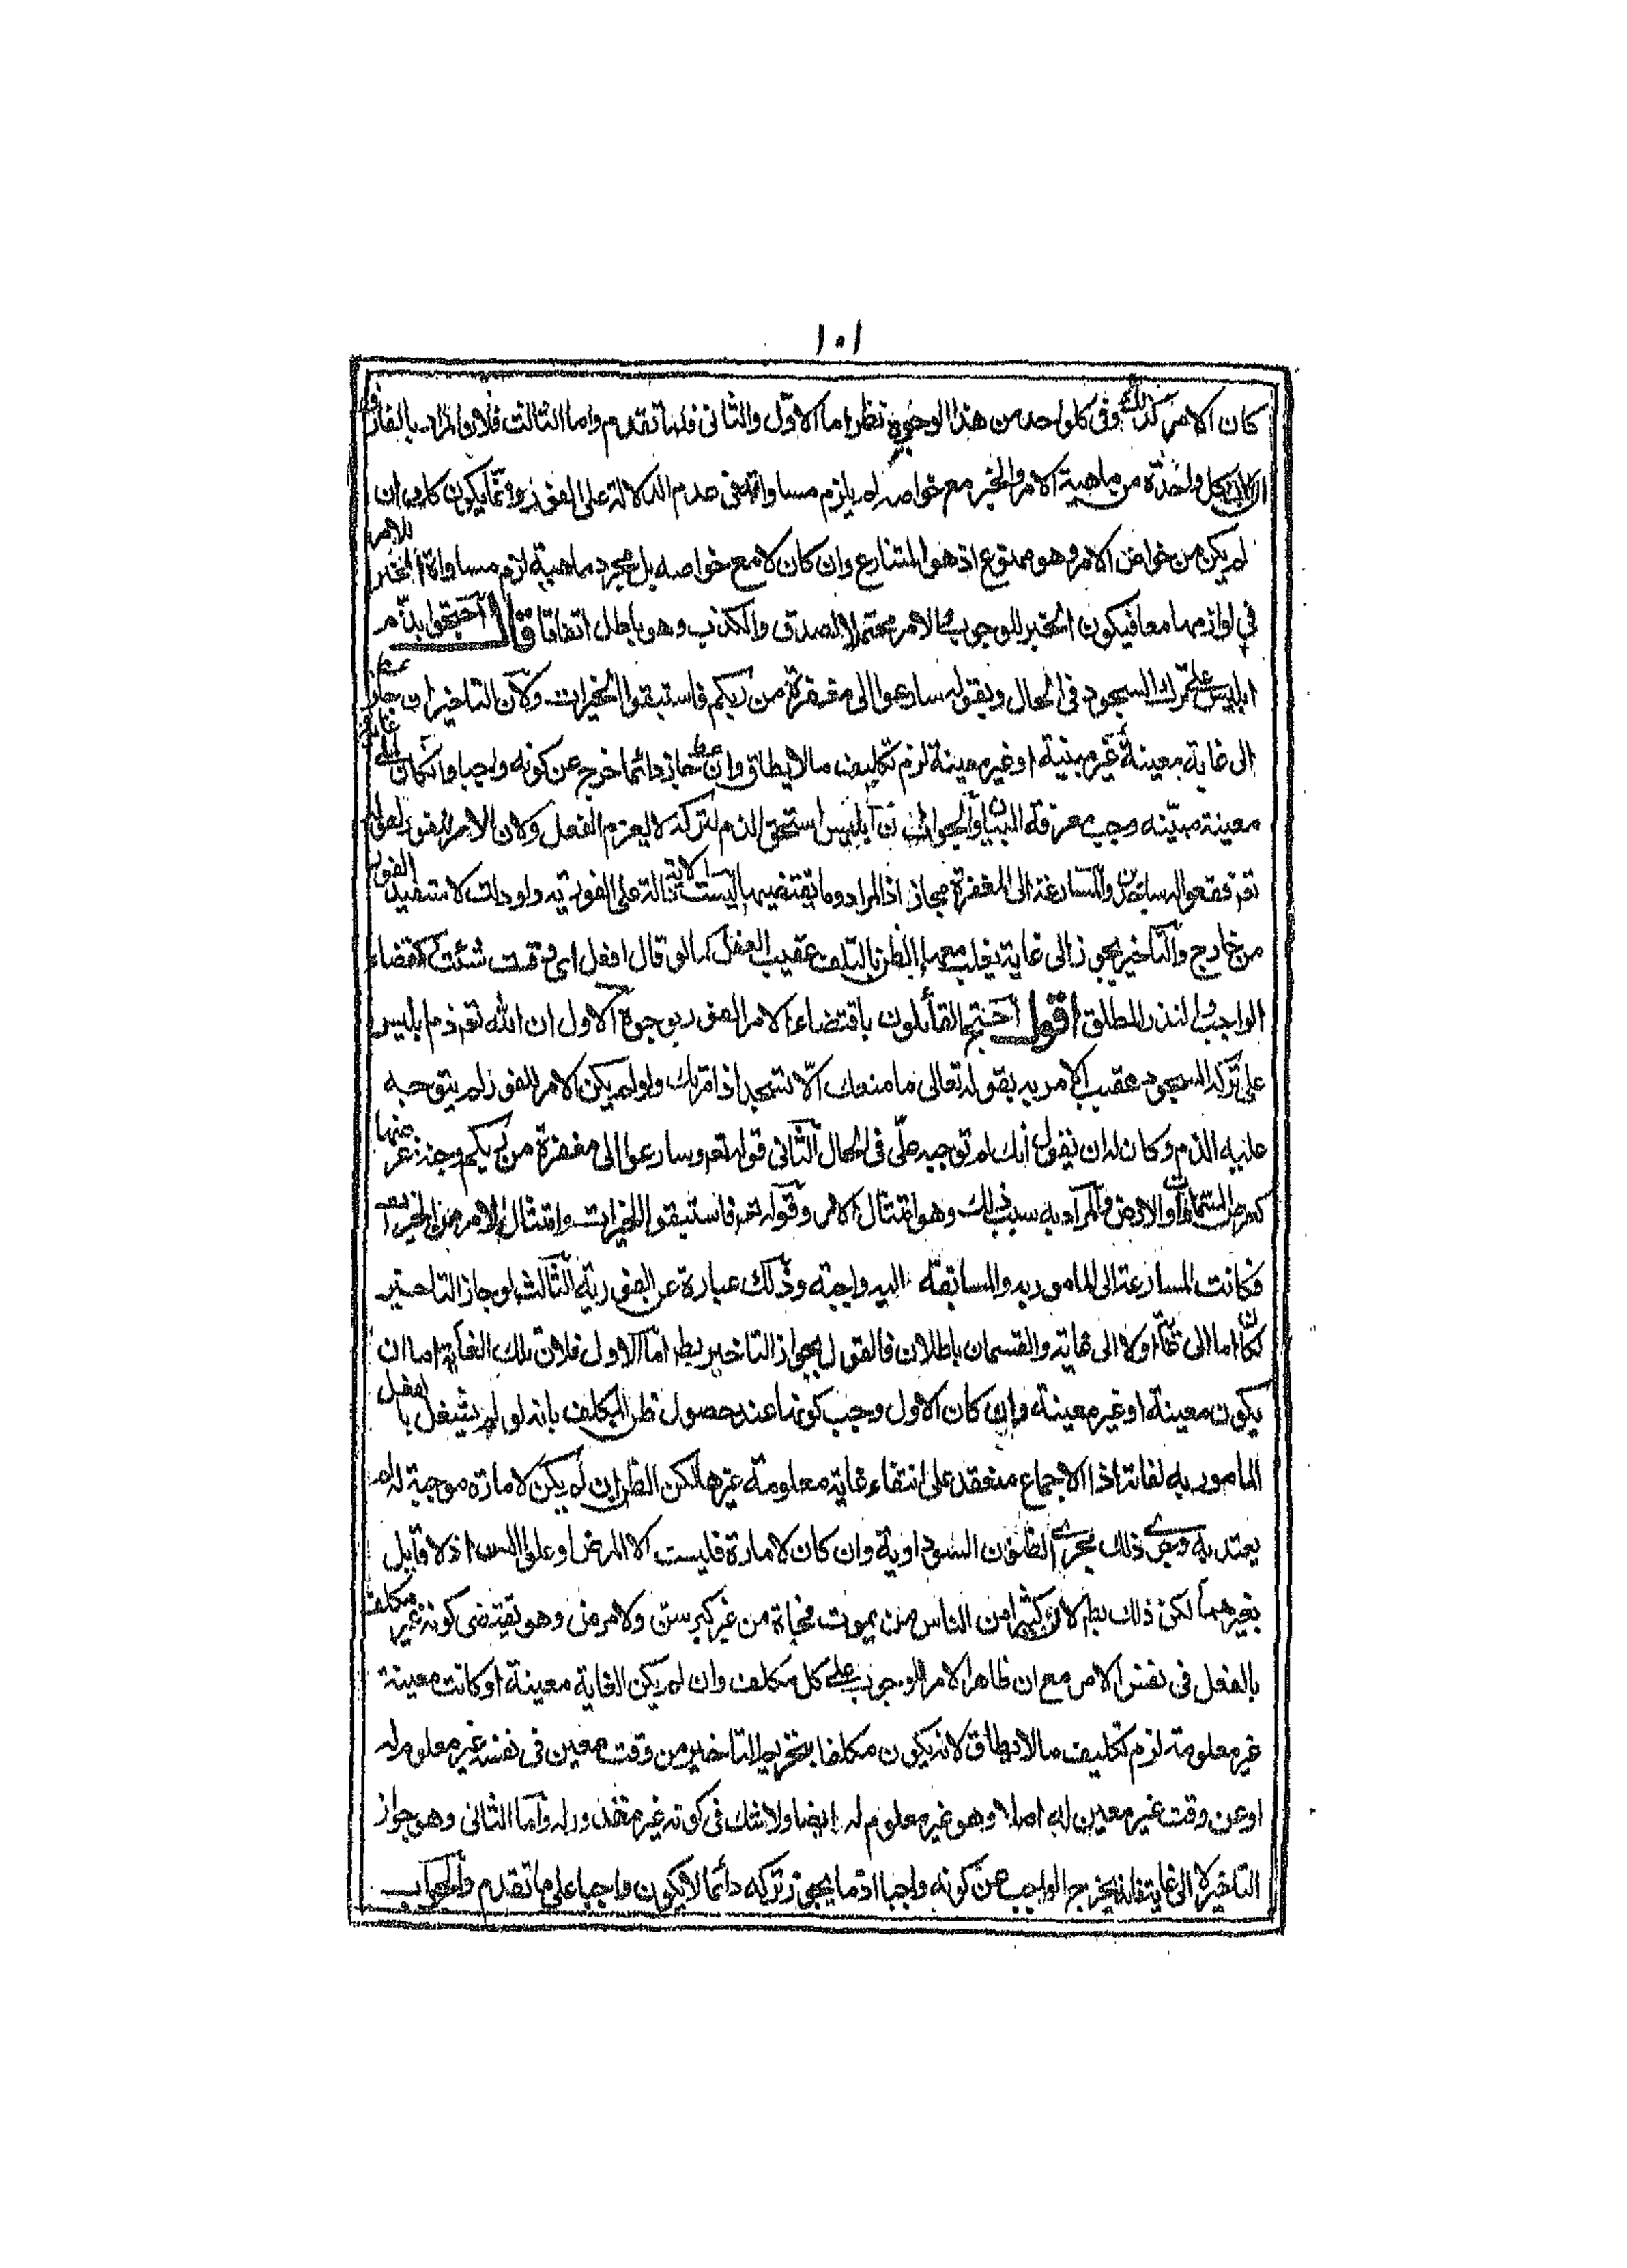 ١٠١
كان الامر كذلك وفى كل واحد من هذا الوجوه نظر اما الاول والثانى فلما تقدم واما الثالث فلان المراد بالفارق
ان كان كل واحدة من ماهية الامر والخبر مع خواصه لم يلزم مساواتهما فى عدم الدلالة على الفور وانما يكون كك ان
لم يكن من خواص الامر وهو ممنوع اذ هو المتنازع وان كان لا مع خواصه بل مجرد ماهيته لزم مساواة الخبر للامر
فى لوازمهما معا فيكون الخبر للوجوب والامر محتملا للصدق والكذب وهو باطل اتفاقا قال احتجوا بذم
ابليس على ترك السجود فى الحال وبقوله سارعوا الى مغفرة من ربكم فاستبقوا الخيرات ولان التاخير ان جاز
الى غاية معينة غير مبينة او غير معينة لزم تكليف ما لا يطاق وان جاز دائما خرج عن كونه واجبا وان كان الى غاية
معينة مبينة وجب معرفة البيان والجواب ان ابليس استحق الذم لتركه لا لعزم الفعل ولان الامر للفور لقوله
تعم فقعوا له ساجدين والمسارعة الى المغفرة مجاز اذ المراد وما يقتضيها ليست الاية دالة على الفورية ولو دلت لاستفيد الفور
من خارج والتاخير يجوز الى غاية يغلب معها الظن بالتلف عقيب الفعل كما لو قال افعل اى وقت شئت كقضاء
الواجب والنذر المطلق اقول احتج القائلون باقتضاء الامر الفور بوجوه الاول ان الله تعم ذم ابليس
على تركه السجود عقيب الامر به بقوله تعالى ما منعك الا تسجد اذ امرتك ولو لم يكن الامر للفور لم يتوجه
عليه الذم وكان له ان يقول انك لم توجبه على فى الحال الثانى قوله تعم وسارعوا الى مغفرة من ربكم وجنة عرضها
كعرض السماوات والارض والمراد به سبب ذلك وهو امتثال الامر وقوله تعم فاستبقوا الخيرات وامتثال الامر من الخيرات
فكانت المسارعة الى المامور به والمسابقة اليه واجبة وذلك عبارة عن الفورية الثالث لو جاز التاخير
لكان اما الى غاية اولا الى غاية والقسمان باطلان فالقول بجواز التاخير بط اما الاول فلان تلك الغاية اما ان
يكون معينة او غير معينة وان كان الاول وجب كونها عند حصول ظن المكلف بانه لو لم يشتغل بالفعل
المامور به لفاته اذ الاجماع منعقد على انتفاء غاية معلومة غيرها لكن الظن ان لم يكن لامارة موجبة له لم
يعتد به وجرى ذلك مجرى الظنون السوداوية وان كان لامارة فليست الا المرض او على السن اذ لا قايل
بغيرهما لكن ذلك بط لان كثيرا من الناس من يموت فجاة من غير كبر سن ولا مرض وهو يقتضى كونه غير مكلف
بالفعل فى نفس الامر مع ان ظاهر الامر الوجوب على كل مكلف وان لم يكن الغاية معينة او كانت معينة
غير معلومة لزم تكليف ما لا يطاق لانه يكون مكلفا بتحريم التاخير من وقت معين فى نفسه غير معلوم له
او عن وقت غير معين له اصلا وهو غير معلوم له ايضا ولا شك فى كونه غير مقدور له واما الثانى وهو جواز
التاخير لا الى غاية فلانه يخرج الواجب عن كونه واجبا اذ ما يجوز تركه دائما لا يكون واجبا على ما تقدم والجواب